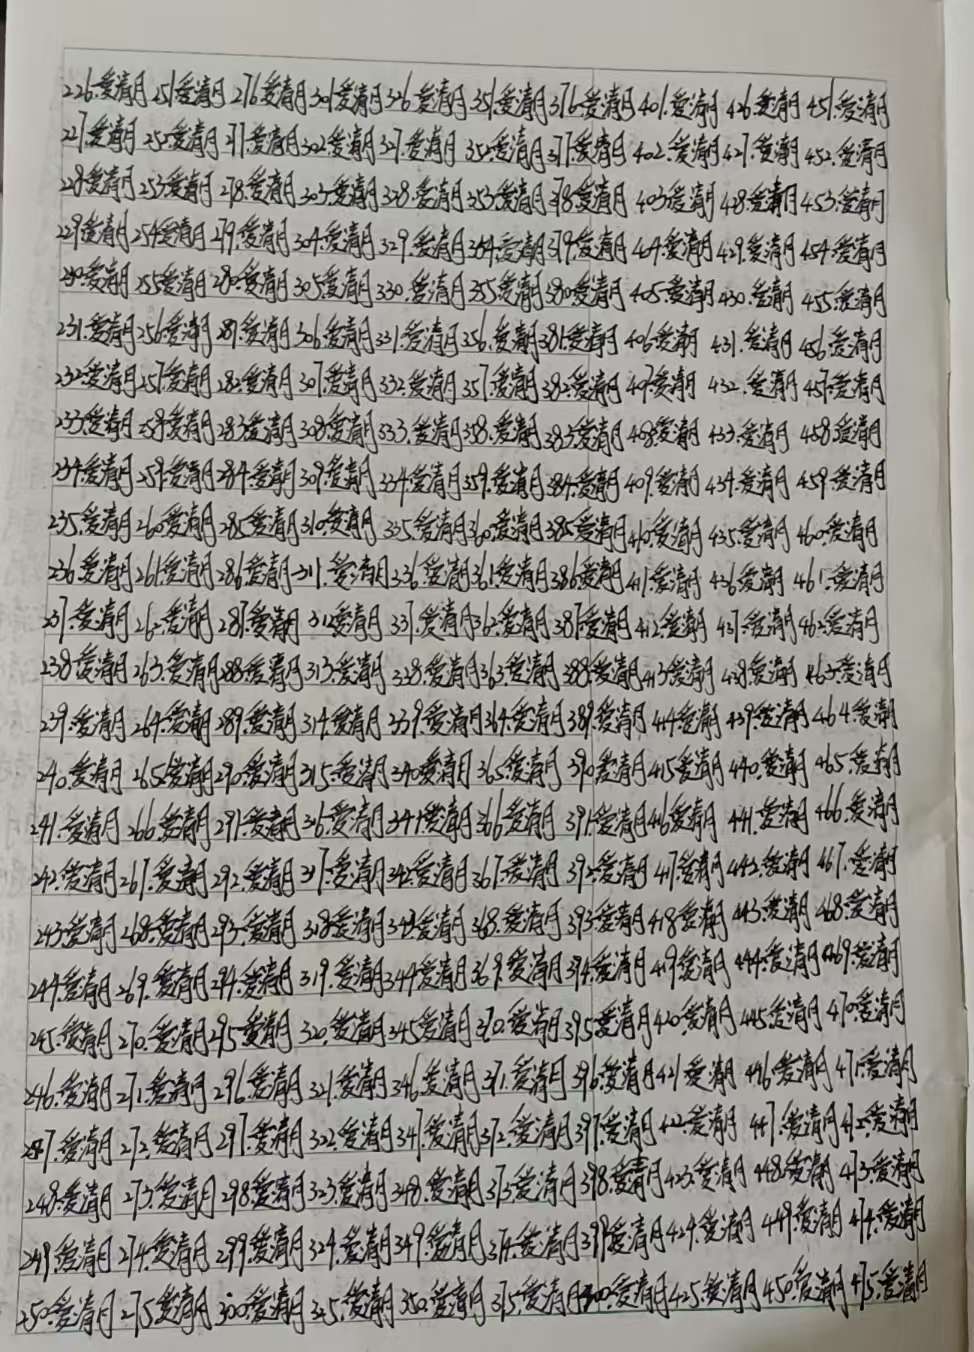 226.爱清月 251.爱清月 276.爱清月 301.爱清月 326.爱清月 351.爱清月 376.爱清月 401.爱清月 426.爱清月 451.爱清月
227.爱清月 252.爱清月 277.爱清月 302.爱清月 327.爱清月 352.爱清月 377.爱清月 402.爱清月 427.爱清月 452.爱清月
228.爱清月 253.爱清月 278.爱清月 303.爱清月 328.爱清月 353.爱清月 378.爱清月 403.爱清月 428.爱清月 453.爱清月
229.爱清月 254.爱清月 279.爱清月 304.爱清月 329.爱清月 354.爱清月 379.爱清月 404.爱清月 429.爱清月 454.爱清月
230.爱清月 255.爱清月 280.爱清月 305.爱清月 330.爱清月 355.爱清月 380.爱清月 405.爱清月 430.爱清月 455.爱清月
231.爱清月 256.爱清月 281.爱清月 306.爱清月 331.爱清月 356.爱清月 381.爱清月 406.爱清月 431.爱清月 456.爱清月
232.爱清月 257.爱清月 282.爱清月 307.爱清月 332.爱清月 357.爱清月 382.爱清月 407.爱清月 432.爱清月 457.爱清月
233.爱清月 258.爱清月 283.爱清月 308.爱清月 333.爱清月 358.爱清月 383.爱清月 408.爱清月 433.爱清月 458.爱清月
234.爱清月 259.爱清月 284.爱清月 309.爱清月 334.爱清月 359.爱清月 384.爱清月 409.爱清月 434.爱清月 459.爱清月
235.爱清月 260.爱清月 285.爱清月 310.爱清月 335.爱清月 360.爱清月 385.爱清月 410.爱清月 435.爱清月 460.爱清月
236.爱清月 261.爱清月 286.爱清月 311.爱清月 336.爱清月 361.爱清月 386.爱清月 411.爱清月 436.爱清月 461.爱清月
237.爱清月 262.爱清月 287.爱清月 312.爱清月 337.爱清月 362.爱清月 387.爱清月 412.爱清月 437.爱清月 462.爱清月
238.爱清月 263.爱清月 288.爱清月 313.爱清月 338.爱清月 363.爱清月 388.爱清月 413.爱清月 438.爱清月 463.爱清月
239.爱清月 264.爱清月 289.爱清月 314.爱清月 339.爱清月 364.爱清月 389.爱清月 414.爱清月 439.爱清月 464.爱清月
240.爱清月 265.爱清月 290.爱清月 315.爱清月 340.爱清月 365.爱清月 390.爱清月 415.爱清月 440.爱清月 465.爱清月
241.爱清月 266.爱清月 291.爱清月 316.爱清月 341.爱清月 366.爱清月 391.爱清月 416.爱清月 441.爱清月 466.爱清月
242.爱清月 267.爱清月 292.爱清月 317.爱清月 342.爱清月 367.爱清月 392.爱清月 417.爱清月 442.爱清月 467.爱清月
243.爱清月 268.爱清月 293.爱清月 318.爱清月 343.爱清月 368.爱清月 393.爱清月 418.爱清月 443.爱清月 468.爱清月
244.爱清月 269.爱清月 294.爱清月 319.爱清月 344.爱清月 369.爱清月 394.爱清月 419.爱清月 444.爱清月 469.爱清月
245.爱清月 270.爱清月 295.爱清月 320.爱清月 345.爱清月 370.爱清月 395.爱清月 420.爱清月 445.爱清月 470.爱清月
246.爱清月 271.爱清月 296.爱清月 321.爱清月 346.爱清月 371.爱清月 396.爱清月 421.爱清月 446.爱清月 471.爱清月
247.爱清月 272.爱清月 297.爱清月 322.爱清月 347.爱清月 372.爱清月 397.爱清月 422.爱清月 447.爱清月 472.爱清月
248.爱清月 273.爱清月 298.爱清月 323.爱清月 348.爱清月 373.爱清月 398.爱清月 423.爱清月 448.爱清月 473.爱清月
249.爱清月 274.爱清月 299.爱清月 324.爱清月 349.爱清月 374.爱清月 399.爱清月 424.爱清月 449.爱清月 474.爱清月
250.爱清月 275.爱清月 300.爱清月 325.爱清月 350.爱清月 375.爱清月 400.爱清月 425.爱清月 450.爱清月 475.爱清月